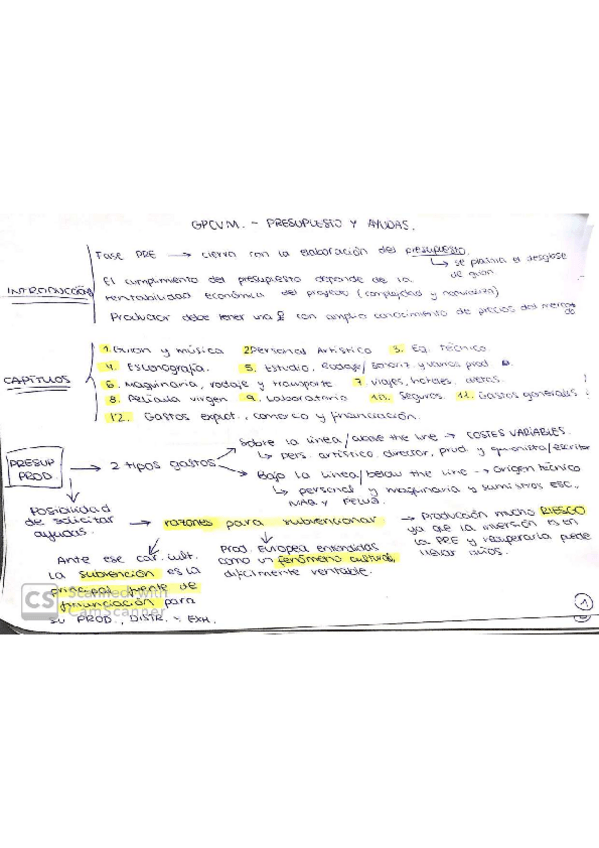 GPCVM. - PRESUPUESTO Y AYUDAS.
INTRODUCCIÓN
Fase PRE → cierra con la elaboración del presupuesto.
↳ se plasma el desglose de guion
El cumplimiento del presupuesto depende de la
rentabilidad económica del proyecto (complejidad y naturaleza)
Productor debe tener una con amplio conocimiento de precios del mercado
CAPÍTULOS
1. Guion y música 2. Personal Artístico 3. Eq. Técnico
4. Escenografía. 5. Estudio, Rodaje/Sonoriz. y varios prod
6. Maquinaria, rodaje y transporte 7. Viajes, hoteles, dietas.
8. Película virgen 9. Laboratorio 10. Seguros. 11. Gastos generales
12. Gastos explot., comerco y financiación.
PRESUP PROD → 2 tipos gastos
Sobre la línea/above the line → COSTES VARIABLES.
↳ pers. artístico, director, prod. y guionista/escritor
Bajo la línea/below the line → origen técnico
↳ personal y maquinaria y suministros esc.,
MAQ. Y PELUQ.
Posibilidad
de solicitar
ayudas.
→ razones para subvencionar
→ Producción mucho RIESGO
ya que la inversión es en
la PRE y recuperarla puede
llevar años.
Ante ese cat. cult.
la subvención es la
principal fuente de
financiación para
su PROD., DISTR. y EXH.
Prod. Europea entendidas
como un fenómeno cultural,
difícilmente rentable.
CS Scanned with
CamScanner
1